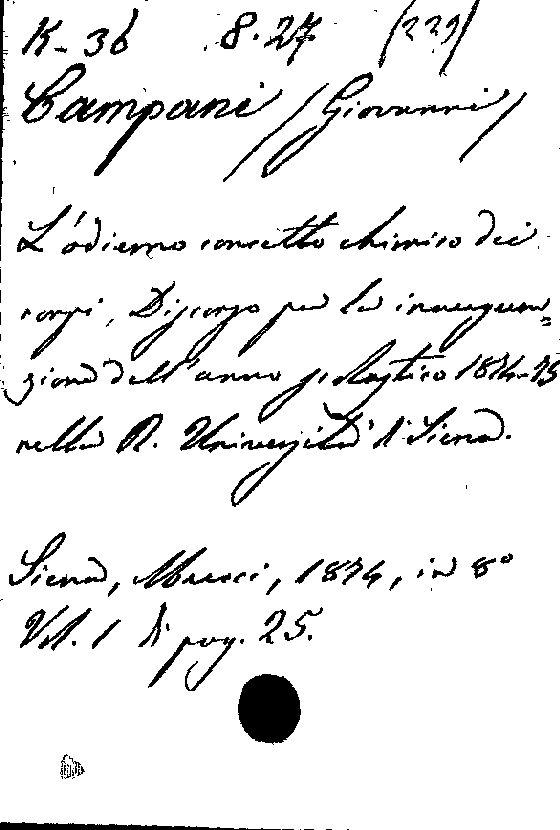 K-36 8.27 (229)
Campani (Giovanni)
L'odierno concetto chimico dei
corpi, Discorso per la inaugura=
zione dell'anno scolastico 1874-75
nella R. Università di Siena.
Siena, Mucci, 1874, in 8º
Vol. 1 di pag. 25.